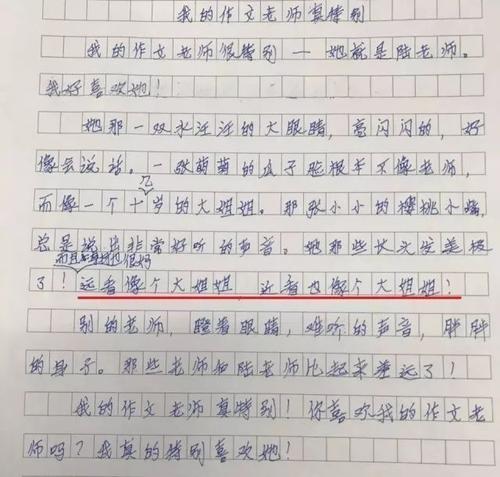 我的作文老师真特别
我的作文老师很特别 — 她就是陆老师。
我好喜欢她！
她那一双水汪汪的大眼睛，亮闪闪的，好
像会说话。一张萌萌的瓜子脸根本不像老师，
而像一个十几岁的大姐姐。那张小小的樱桃小嘴，
总是说出非常好听的声音。她那些长头发美极
了！而且身材也很好
远看像个大姐姐，近看也像个大姐姐！
别的老师，瞪着眼睛，难听的声音，胖胖
的身子。那些老师和陆老师比起来差远了！
我的作文老师真特别！你喜欢我的作文老
师吗？我真的特别喜欢她！